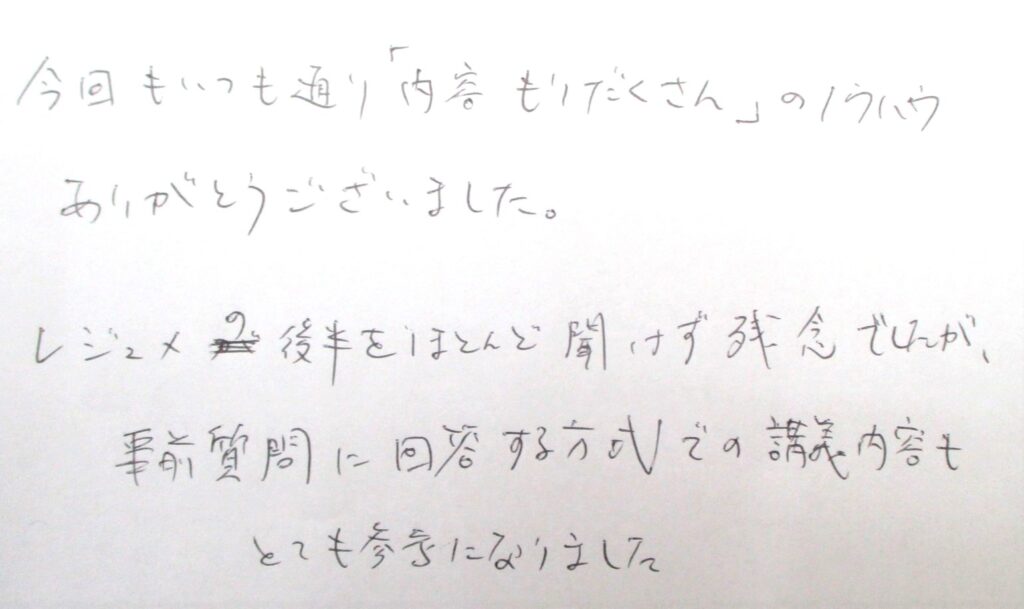 今回もいつも通り「内容もりだくさん」のノウハウ
ありがとうございました。
レジュメの後半をほとんど聞けず残念でしたが、
事前質問に回答する方式での講義内容も
とても参考になりました